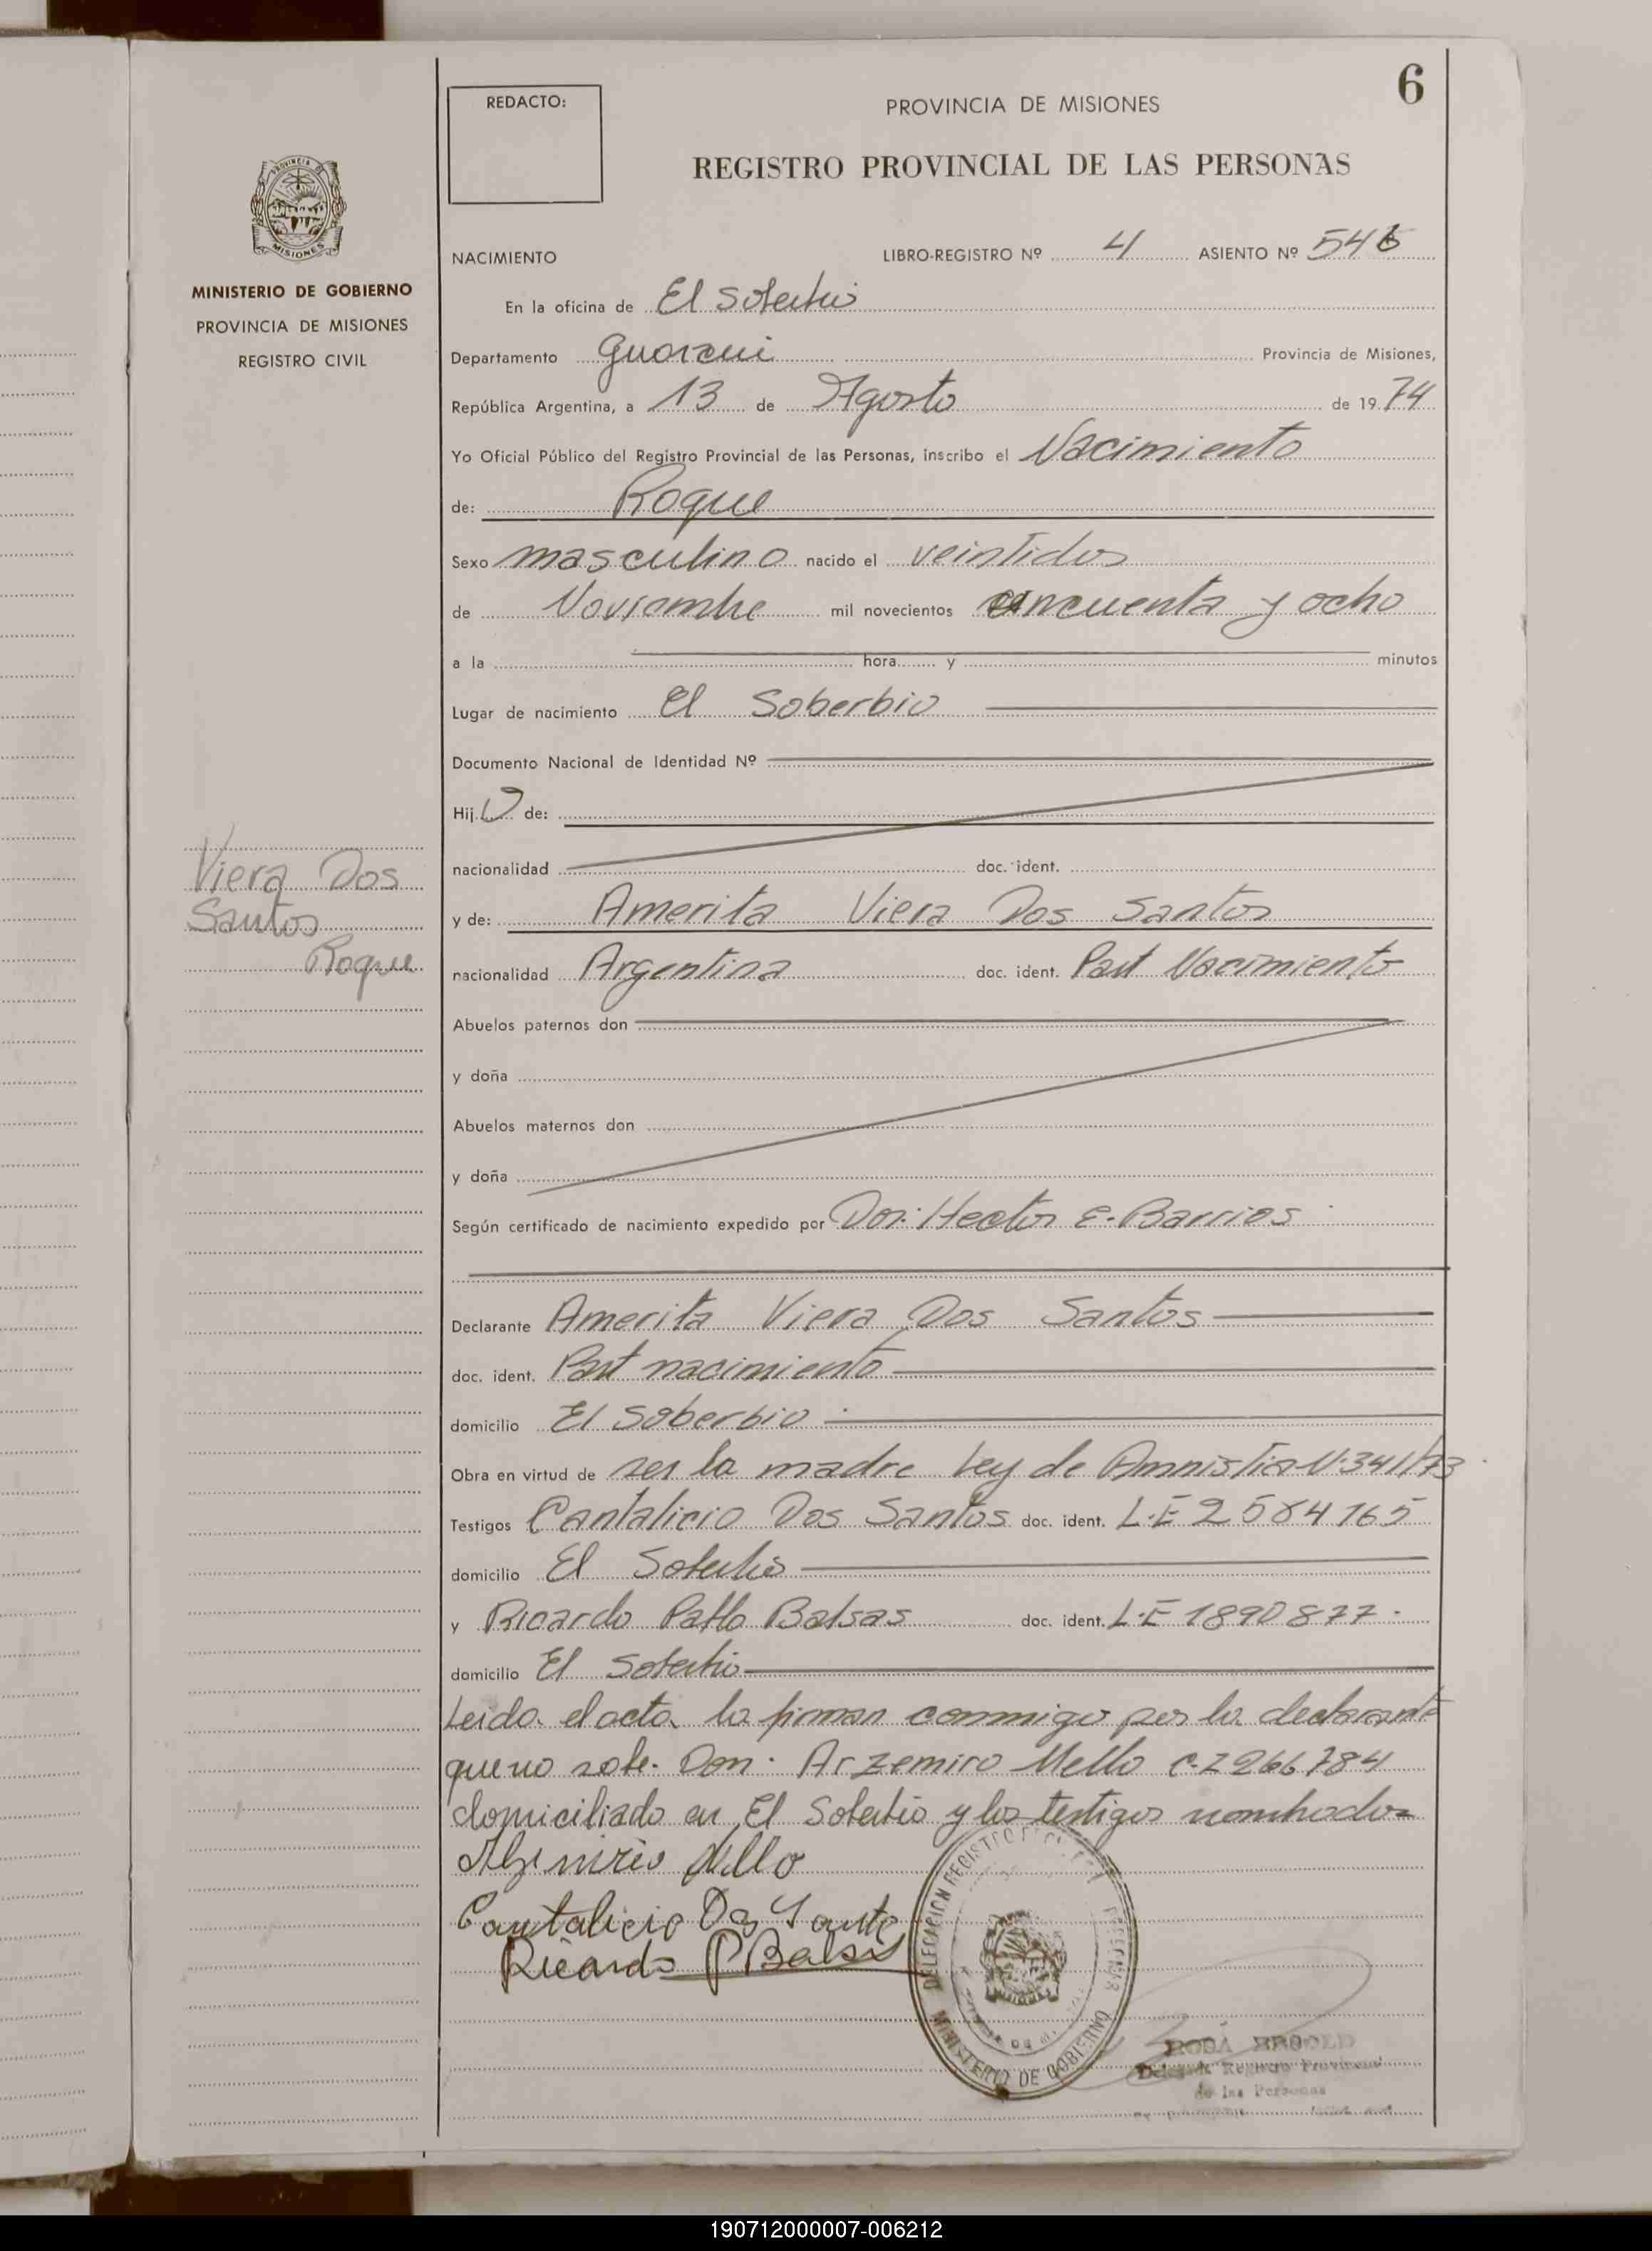 6
REDACTO:
PROVINCIA DE MISIONES
REGISTRO PROVINCIAL DE LAS PERSONAS
PROVINCIA
MISIONES
MINISTERIO DE GOBIERNO
PROVINCIA DE MISIONES
REGISTRO CIVIL
NACIMIENTO LIBRO-REGISTRO Nº 4 ASIENTO Nº 546
En la oficina de El Soberbio
Departamento Guarani Provincia de Misiones,
República Argentina, a 13 de Agosto de 1974
Yo Oficial Público del Registro Provincial de las Personas, inscribo el Nacimiento
de: Roque
Sexo masculino nacido el veintidos
de Noviembre mil novecientos cincuenta y ocho
a la hora y minutos
Lugar de nacimiento El Soberbio
Documento Nacional de Identidad Nº
Hijo de:
nacionalidad doc. ident.
Viera Dos
Santos
Roque
y de: Amerita Viera Dos Santos
nacionalidad Argentina doc. ident. Part Nacimiento
Abuelos paternos don
y doña
Abuelos maternos don
y doña
Según certificado de nacimiento expedido por Dor: Hector E. Barrios
Declarante Amerita Viera Dos Santos
doc. ident. Part nacimiento
domicilio El Soberbio
Obra en virtud de ser la madre Ley de Amnistia N. 341/73
Testigos Cantalicio Dos Santos doc. ident. L.E 2584765
domicilio El Soberbio
y Ricardo Pablo Balsas doc. ident. L.E 1890877.
domicilio El Soberbio
Leida el acta la firman conmigo por la declarante
que no sabe. Don. Arzemiro Mello C.I 266784
domiciliado en El Soberbio y los testigos nombrados
Mello
Cantalicio Dos Santo
Ricardo P Balsas
DELEGACION REGISTRO PERSONAS
MINISTERIO DE GOBIERNO
Registro Provincial
de las Personas
190712000007-006212